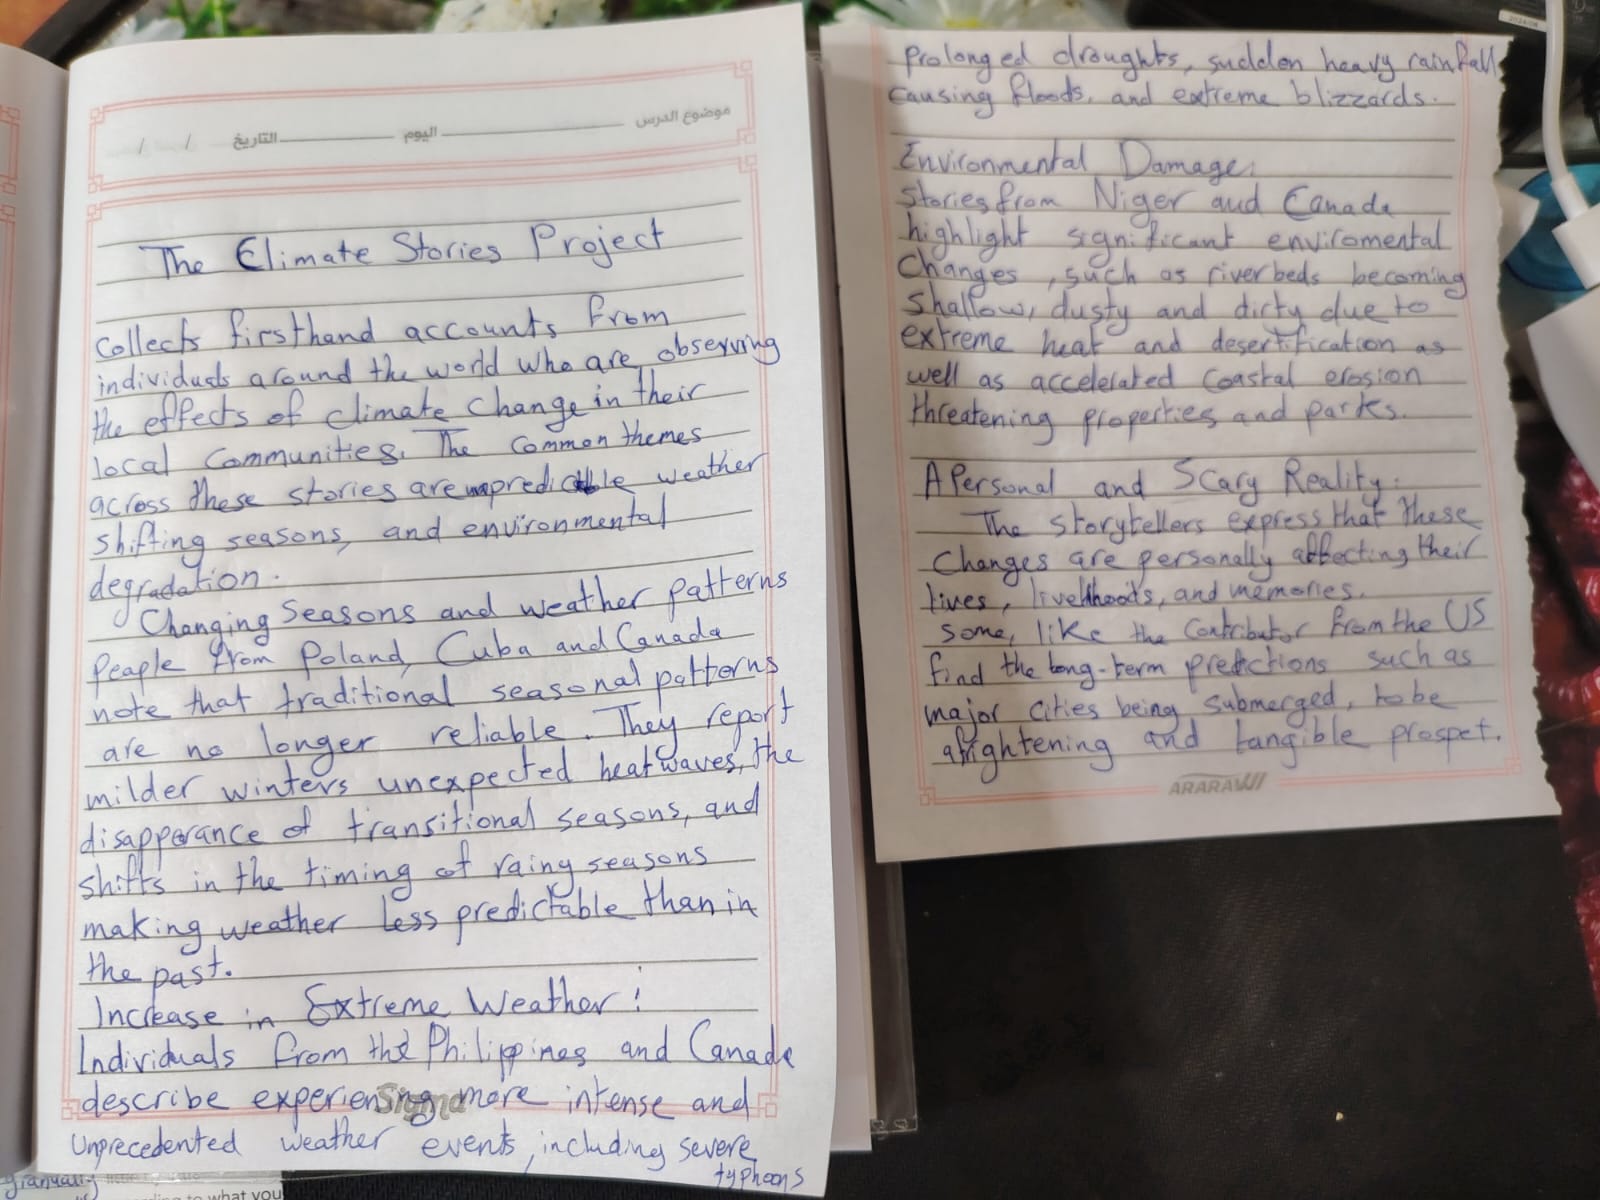 موضوع الدرس اليوم التاريخ / /
The Climate Stories Project
Collects firsthand accounts from
individuals around the world who are observing
the effects of climate change in their
local communities. The common themes
across these stories are unpredictable weather
shifting seasons, and environmental
degradation.
Changing Seasons and weather patterns
People from Poland, Cuba and Canada
note that traditional seasonal patterns
are no longer reliable. They report
milder winters unexpected heatwaves, the
disapperance of transitional seasons, and
shifts in the timing of rainy seasons
making weather less predictable than in
the past.
Increase in Extreme Weather:
Individuals from the Philippines and Canada
describe experiencing more intense and
Sigma
Unprecedented weather events, including severe
typhoons
granually
what you
Prolonged droughts, sudden heavy rainfall
causing floods, and extreme blizzards.
Environmental Damage:
Stories from Niger and Canada
highlight significant enviromental
Changes, such as riverbeds becoming
shallow, dusty and dirty due to
extreme heat and desertification as
well as accelerated coastal erosion
threatening properties and parks.
A Personal and Scary Reality:
The storytellers express that these
Changes are personally affecting their
lives, livelhoods, and memories.
some, like the Contributor from the US
find the long-term predictions such as
major cities being submerged, to be
afrightening and tangible prospet.
ARARAWI